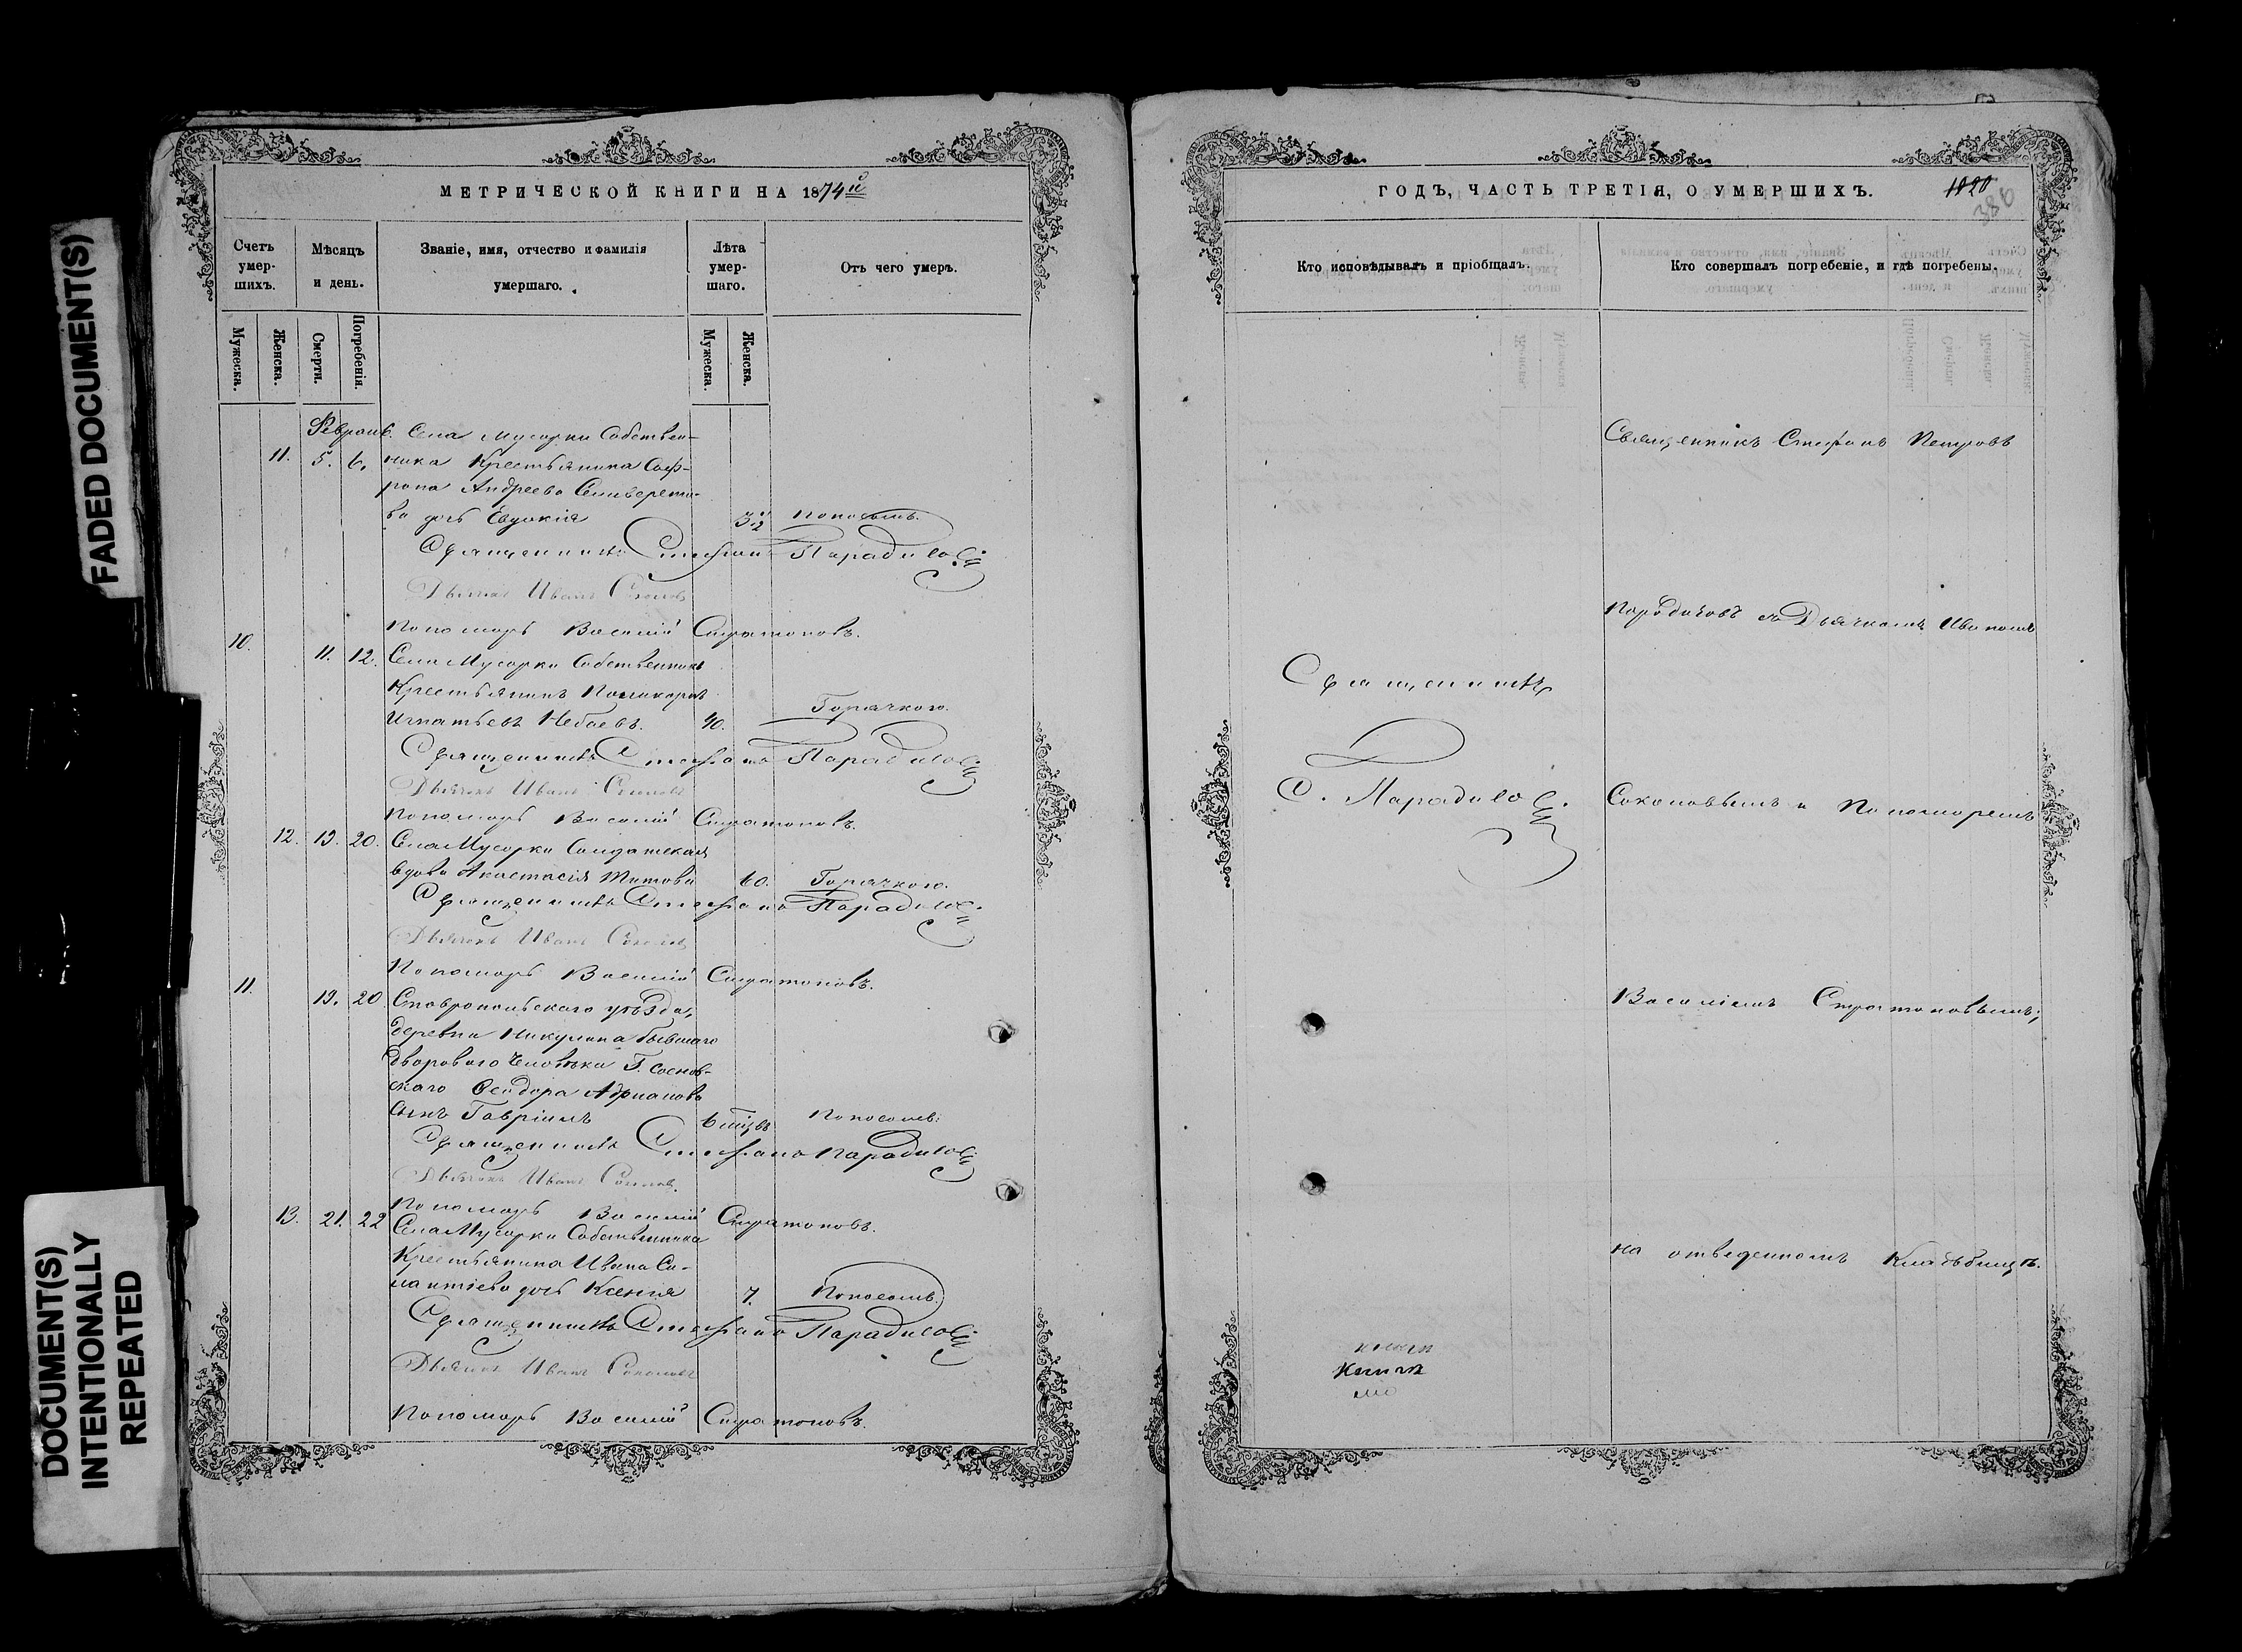 FADED DOCUMENT(S)
DOCUMENT(S)
INTENTIONALLY
REPEATED
МЕТРИЧЕСКОЙ КНИГИ НА 1874й
Счетъ умер-шихъ.
Мѣсяцъ и день.
Званіе, имя, отчество и фамилія умершаго.
Лѣта умер-шаго.
Отъ чего умеръ.
Мужеска.
Женска.
Смерти.
Погребенія.
Мужеска.
Женска.
Февраль. Села Мусорки Собствен-
11. 5. 6. ника Крестьянина Соф-
рона Андреева Селиверсто-
ва дочь Евдокія
Поносомъ.
Священникъ Стефанъ Парадизовъ
Дьячекъ Иванъ Соколовъ
Пономарь Василій Стратоновъ.
10. 11. 12. Села Мусорки Собственникъ
Крестьянинъ Поликарпъ
Игнатьевъ Небаевъ. 40. Горячкою.
Священникъ Стефанъ Парадизовъ
Дьячекъ Иванъ Соколовъ
Пономарь Василій Стратоновъ.
12. 19. 20. Села Мусорки Солдатская
вдова Анастасія Титова 60. Горячкою.
Священникъ Стефанъ Парадизовъ
Дьячекъ Иванъ Соколовъ
Пономарь Василій Стратоновъ.
11. 19. 20 Ставропольскаго уѣзда,
деревни Никулина бывшаго
двороваго человѣка Г. Соснов-
скаго Ѳеодора Адрианова
сынъ Гавріилъ 6 мцъ Поносомъ.
Священникъ Стефанъ Парадизовъ
Дьячекъ Иванъ Соколовъ.
Пономарь Василій Стратоновъ.
13. 21. 22 Села Мусорки Собственника
Крестьянина Ивана Си-
лантіева дочь Ксенія 7. Поносомъ.
Священникъ Стефанъ Парадизовъ
Дьячекъ Иванъ Соколовъ
Пономарь Василій Стратоновъ.
ГОДЪ, ЧАСТЬ ТРЕТІЯ, О УМЕРШИХЪ.
Кто исповѣдывалъ и пріобщалъ.
Кто совершалъ погребеніе, и гдѣ погребены.
Священникъ Стефанъ Петровъ
Парадизовъ съ Дьячкомъ Иваномъ
Священникъ
С. Парадизовъ.
Соколовымъ и Пономаремъ
Василіемъ Стратоновымъ,
на отведенномъ Кладбищѣ.